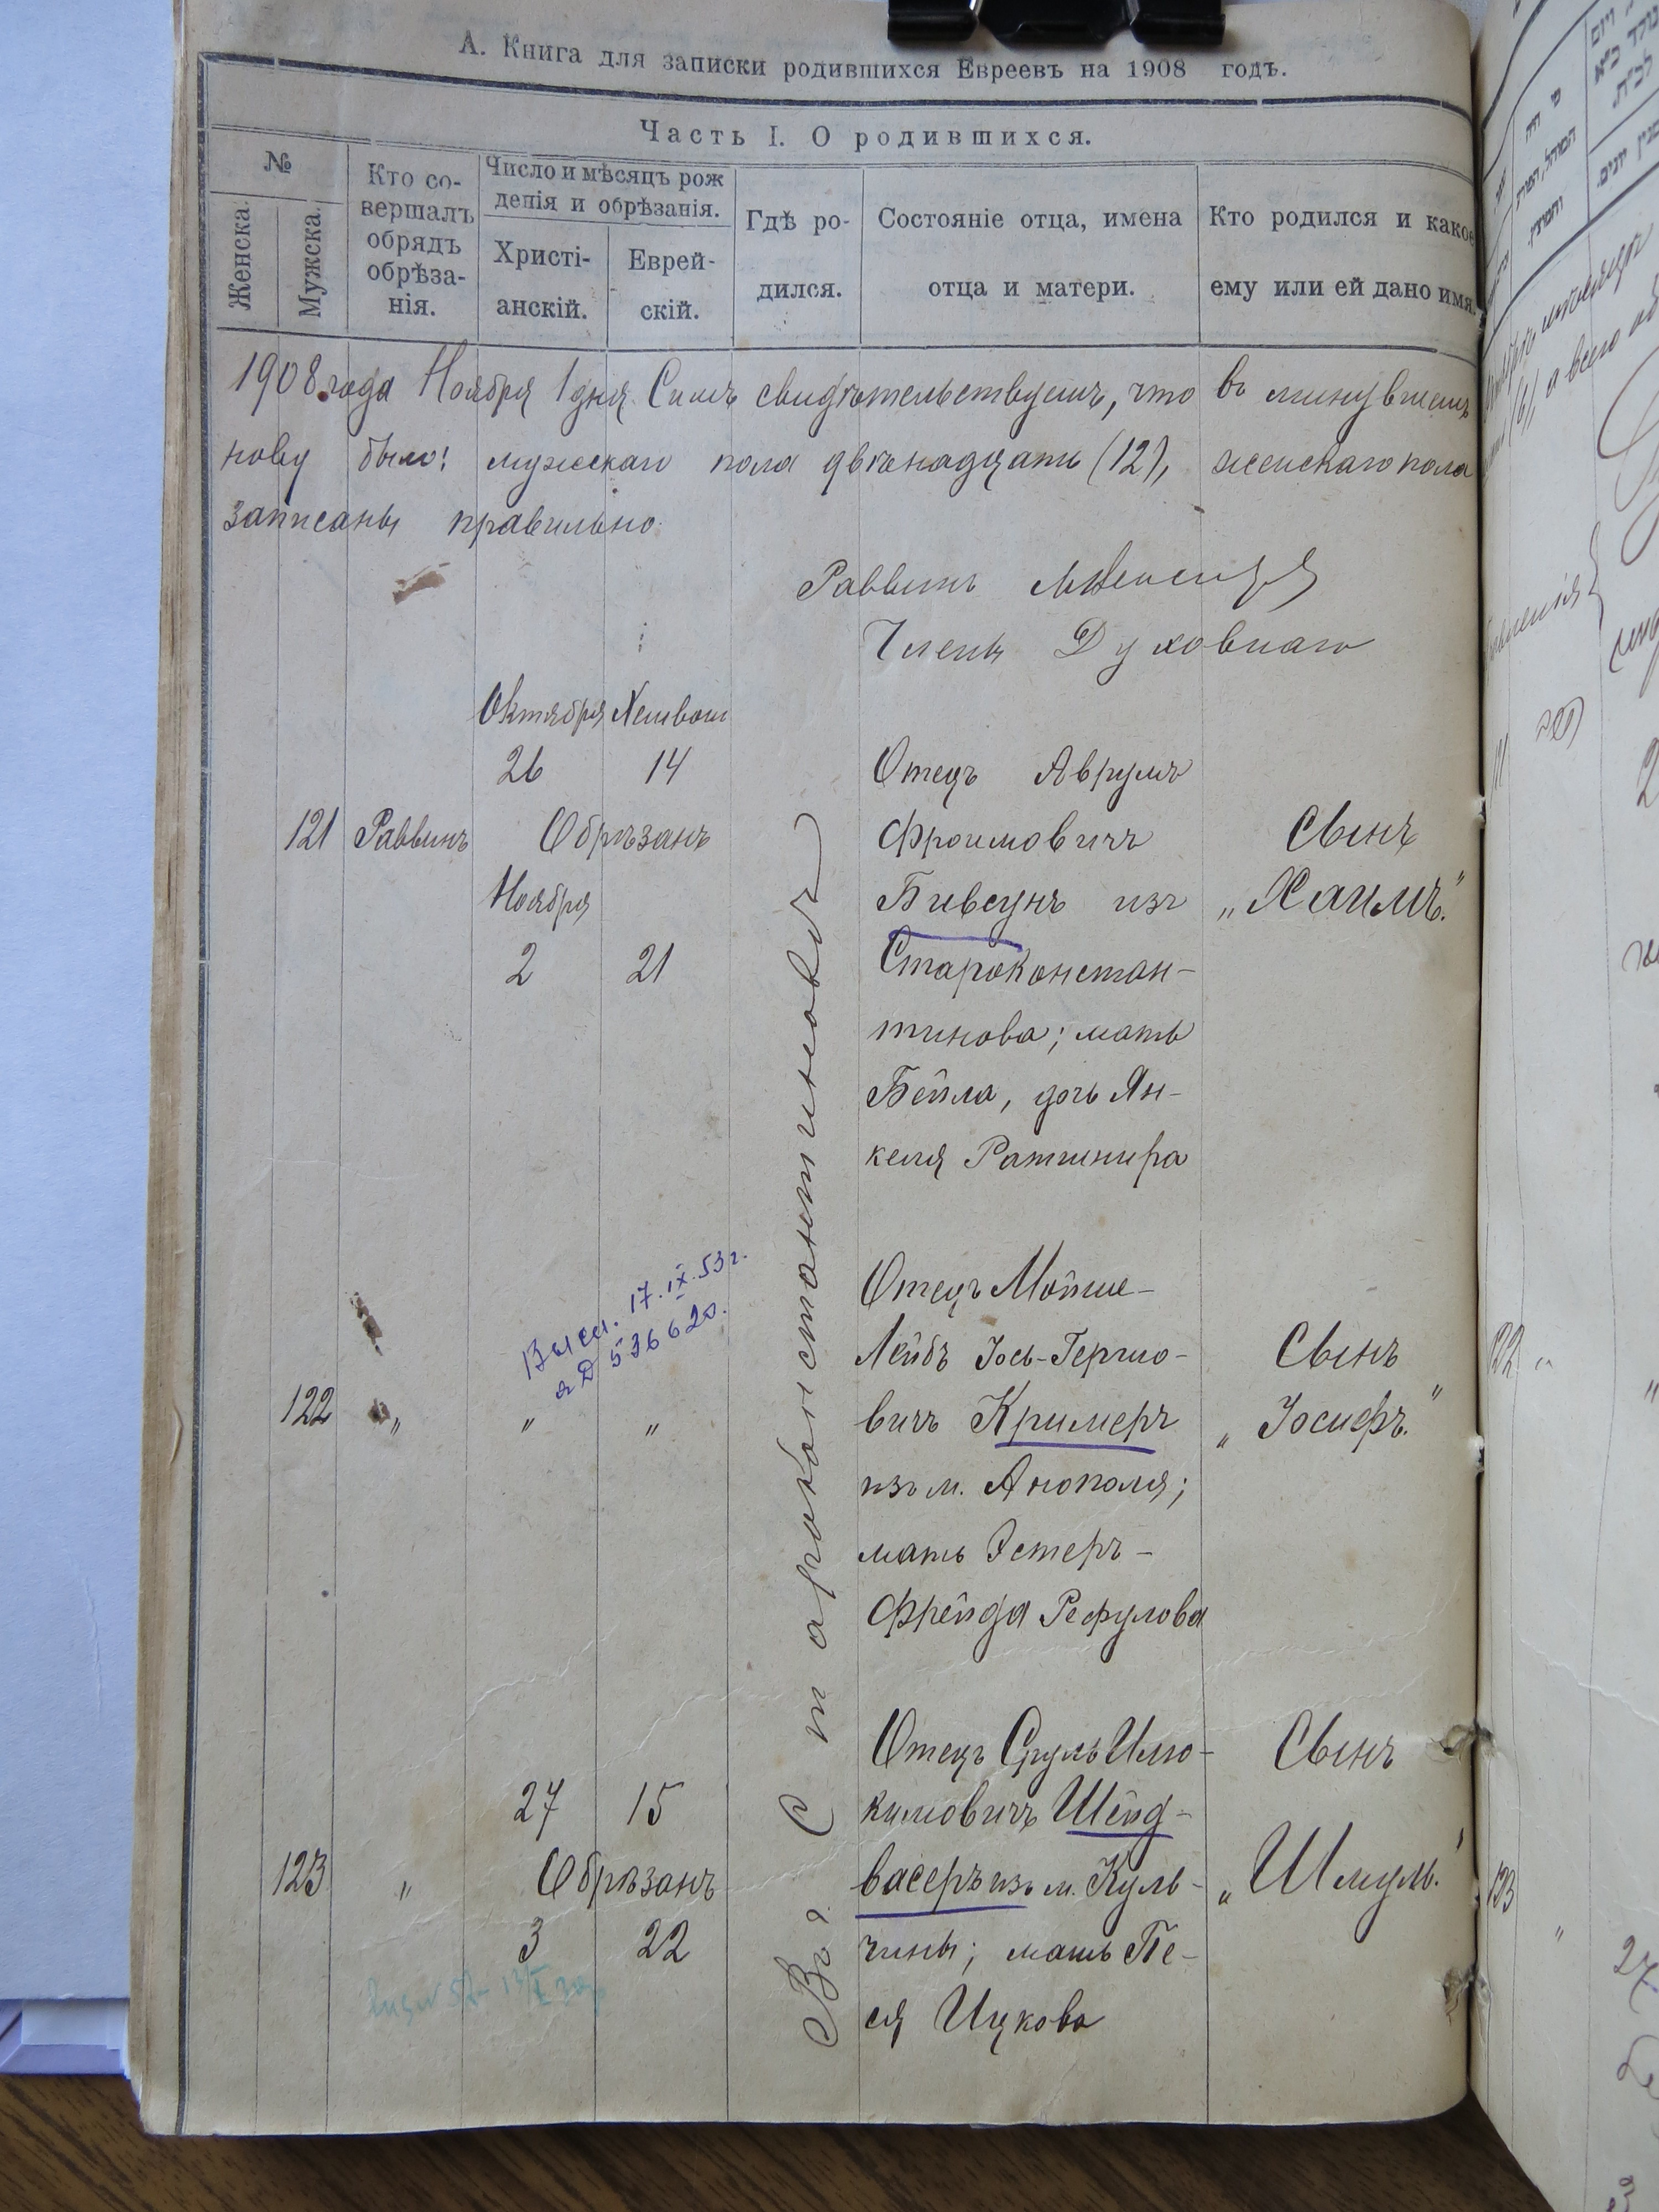 А. Книга для записки родившихся Евреевъ на 1908 годъ.
Часть I. О родившихся.
№
Женска.
Мужска.
Кто со-
вершалъ
обрядъ
обрѣза-
нія.
Число и мѣсяцъ рож
денія и обрѣзанія.
Христі-
анскій.
Еврей-
скій.
Гдѣ ро-
дился.
Состояніе отца, имена
отца и матери.
Кто родился и какое
ему или ей дано имя.
1908 года Ноября 1 дня. Симъ свидѣтельствуемъ, что въ минувшемъ
нову было: мужскаго пола двѣнадцать (12), женскаго пола
записаны правильно.
Раввинъ
Члены Духовнаго
Октября Хешван
26 14
121 Раввинъ Обрѣзанъ
Ноября
2 21
Отецъ Аврумъ
Фроимовичъ
Бивсунъ изъ
Староконстан-
тинова; мать
Бейла, дочь Ян-
келя Ратинира
Сынъ
„Хаимъ."
Въ г. Староконстантиновѣ
17.IX.53г.
536620.
122 „ „ „
Отецъ Мойше-
Лейбъ Іось-Гершо-
вичъ Кримеръ
изъ м. Анополя;
мать Эстеръ-
Фрейда Рефулова
Сынъ
„Іосифъ."
27 15
123 „ Обрѣзанъ
3 22
Отецъ Сруль Ило-
кимовичъ Шейд-
васеръ изъ м. Куль-
чины; мать Пе-
ся Ицкова
Сынъ
„Шмуль."